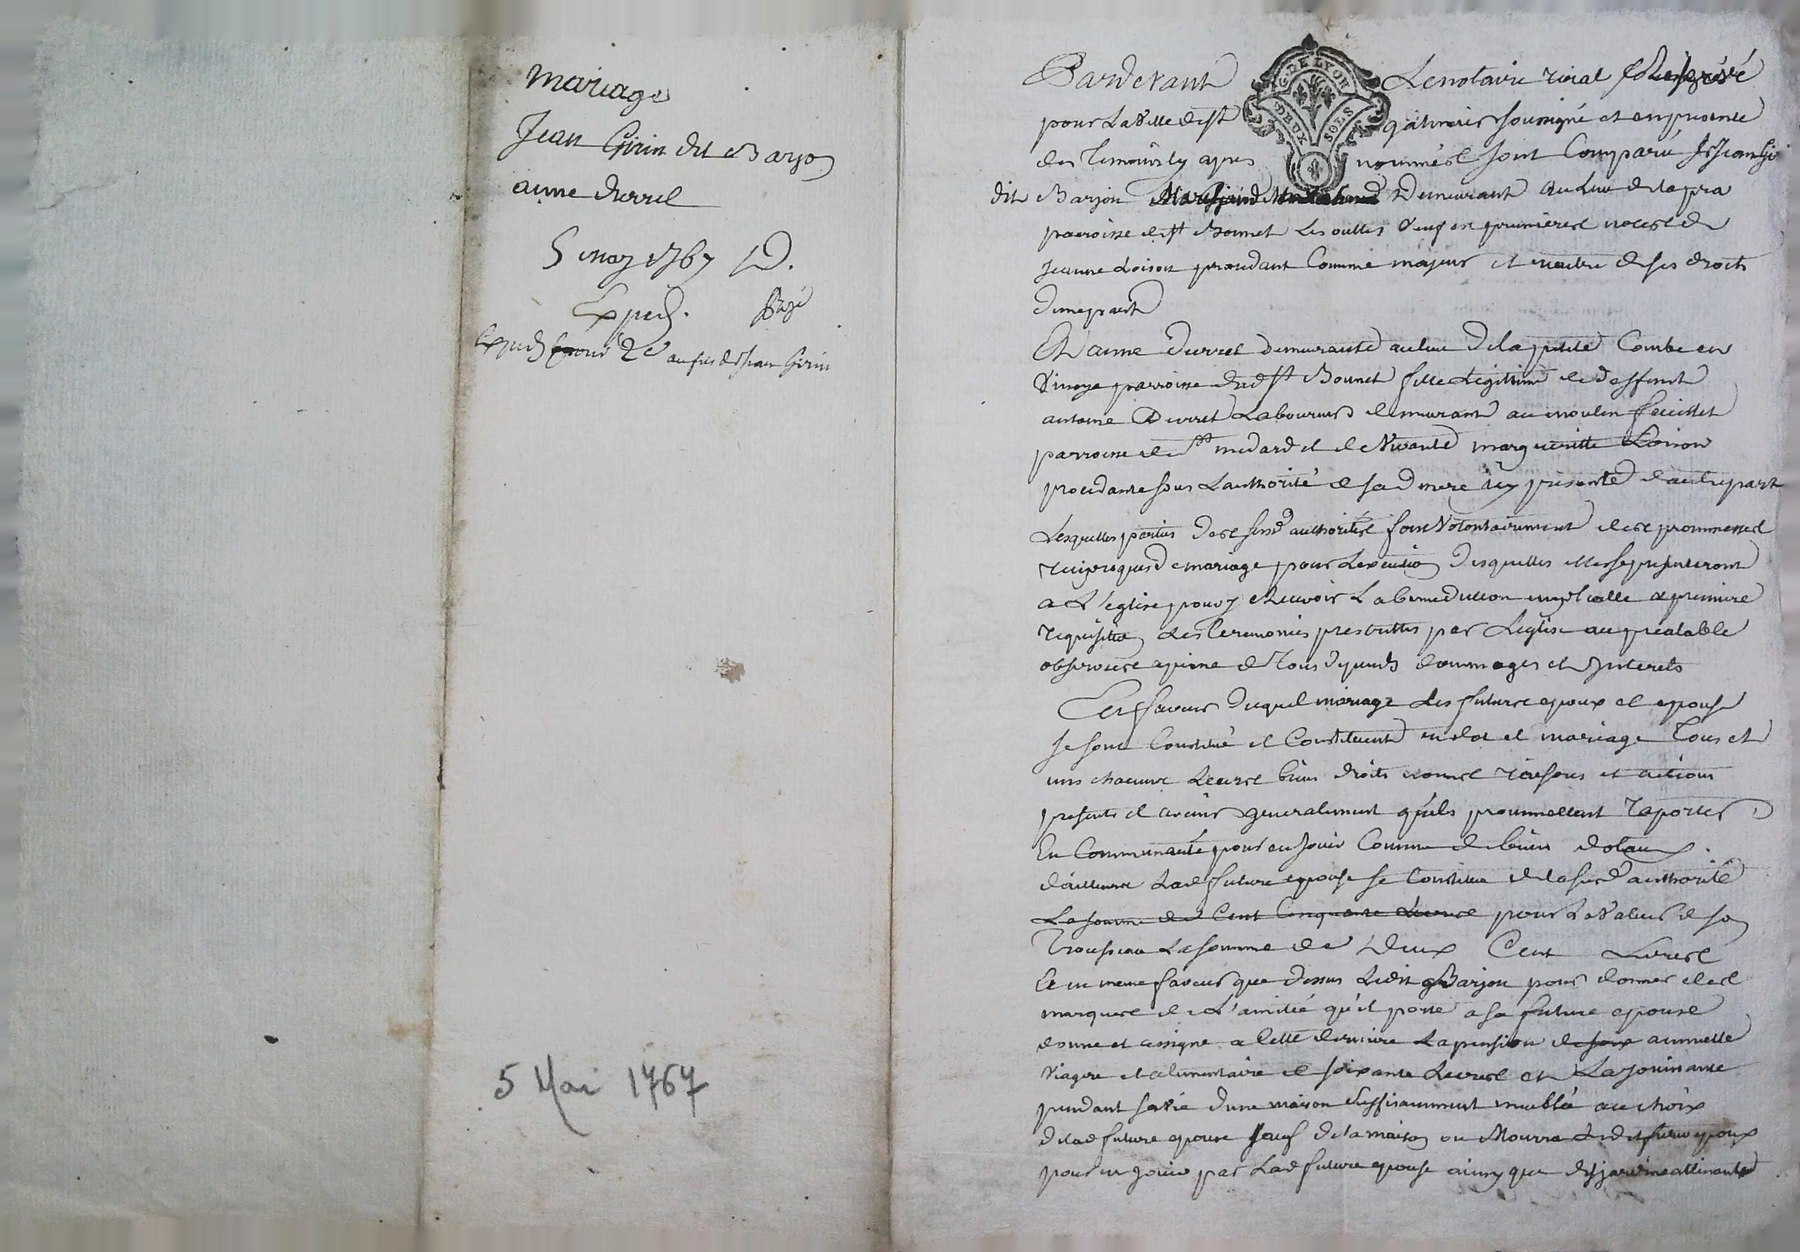 mariage
Jean Girin dit Barjon
anne Durrel
5 may 1767
Exped.
Exped 2e au fils de Jean Girin
5 Mai 1767
G. DE LYON
DEUX SOLS
Pardevant Le notaire roial
pour La Ville de St galmier soussigné et en presence
des Temoins cy apres nommés sont Comparu Sr Jean Gi
dit Barjon Marchand Demeurant au Lieu de la pra
parroisse de St Bonnet Les oulles Veuf en premieres noces de
Jeanne Loison procedant Comme majeur et maitre de ses droits
d'une part
Et anne Durret demeurante au lieu de la petite Combe en
parroisse dud St Bonnet fille Legitime de deffunt
antoine Durret Laboureur demeurant au moulin
parroisse de St medard et de Vivante margueritte Loison
procedante sous L'authorité de sad mere icy presente d'autre part
Lesquelles parties de susd authorités font Volontairement des promesses
reciproques de mariage pour L'execution desquelles elles se presenteront
a L'eglise pour y Recevoir La benediction nuptialle a premiere
requisition Les Ceremonies prescrittes par L'eglise au prealable
observées a peine de Tous depends dommages et Interets
En faveur duquel mariage Les futurs epoux et epouse
se sont Constitué et Constituent en dot et mariage Tous et
uns chacuns Leurs biens droits noms raisons et actions
presents et avenir generalement qu'ils promettent raporter
En Communauté pour en Jouir Comme de biens dotaux.
d'ailleurs Lad future epouse se Constitue de la susd authorité
La somme de Cent Cinquante Livres pour La Valeur de son
Trousseau La somme de Deux Cent Livres
Et en meme faveur que dessus Ledit Barjon pour donner des
marques de L'amitié qu'il porte a sa future epouse
donne et assigne a Cette derniere La pension de annuelle
Viagere et alimentaire de soixante Livres et La jouissance
pendant sa vie d'une maison suffisamment meublée au choix
de lad future epouse sauf de la maison ou Mourra Ledit futur epoux
pour en Jouir par Lad future epouse ainsy que des jardins attinants